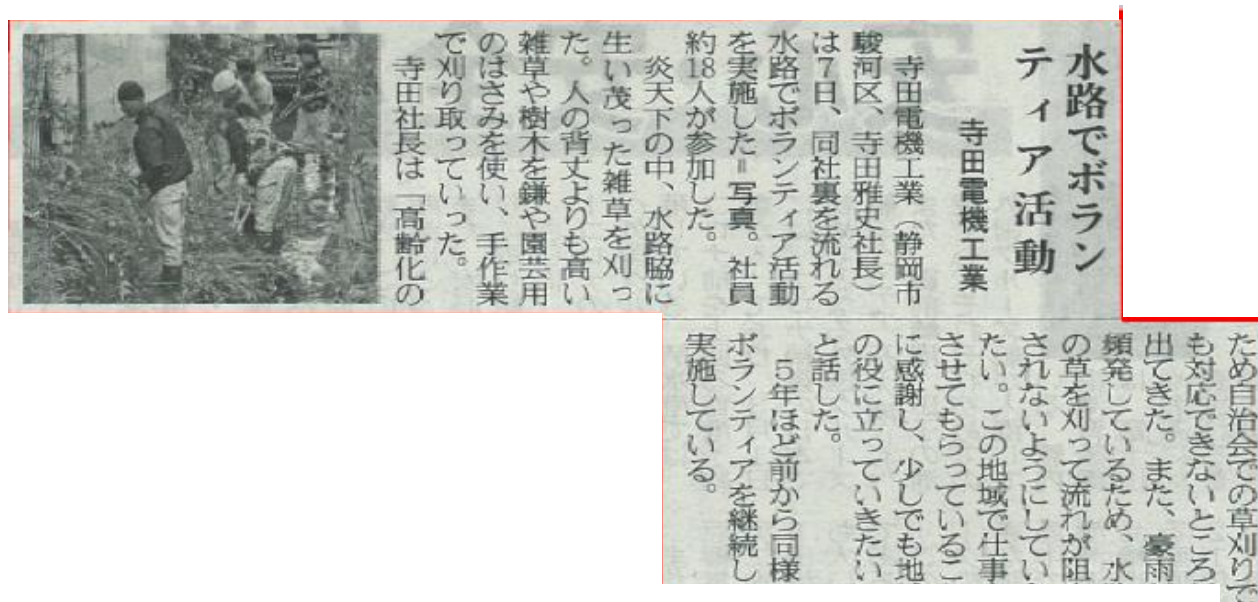 水路でボラン
ティア活動
寺田電機工業
寺田電機工業（静岡市
駿河区、寺田雅史社長）
は７日、同社裏を流れる
水路でボランティア活動
を実施した＝写真。社員
約18人が参加した。
炎天下の中、水路脇に
生い茂った雑草を刈っ
た。人の背丈よりも高い
雑草や樹木を鎌や園芸用
のはさみを使い、手作業
で刈り取っていった。
寺田社長は「高齢化の
ため自治会での草刈りで
も対応できないところ
出てきた。また、豪雨
頻発しているため、水
の草を刈って流れが阻
されないようにしてい
たい。この地域で仕事
させてもらっているこ
に感謝し、少しでも地
の役に立っていきたい
と話した。
５年ほど前から同様
ボランティアを継続し
実施している。